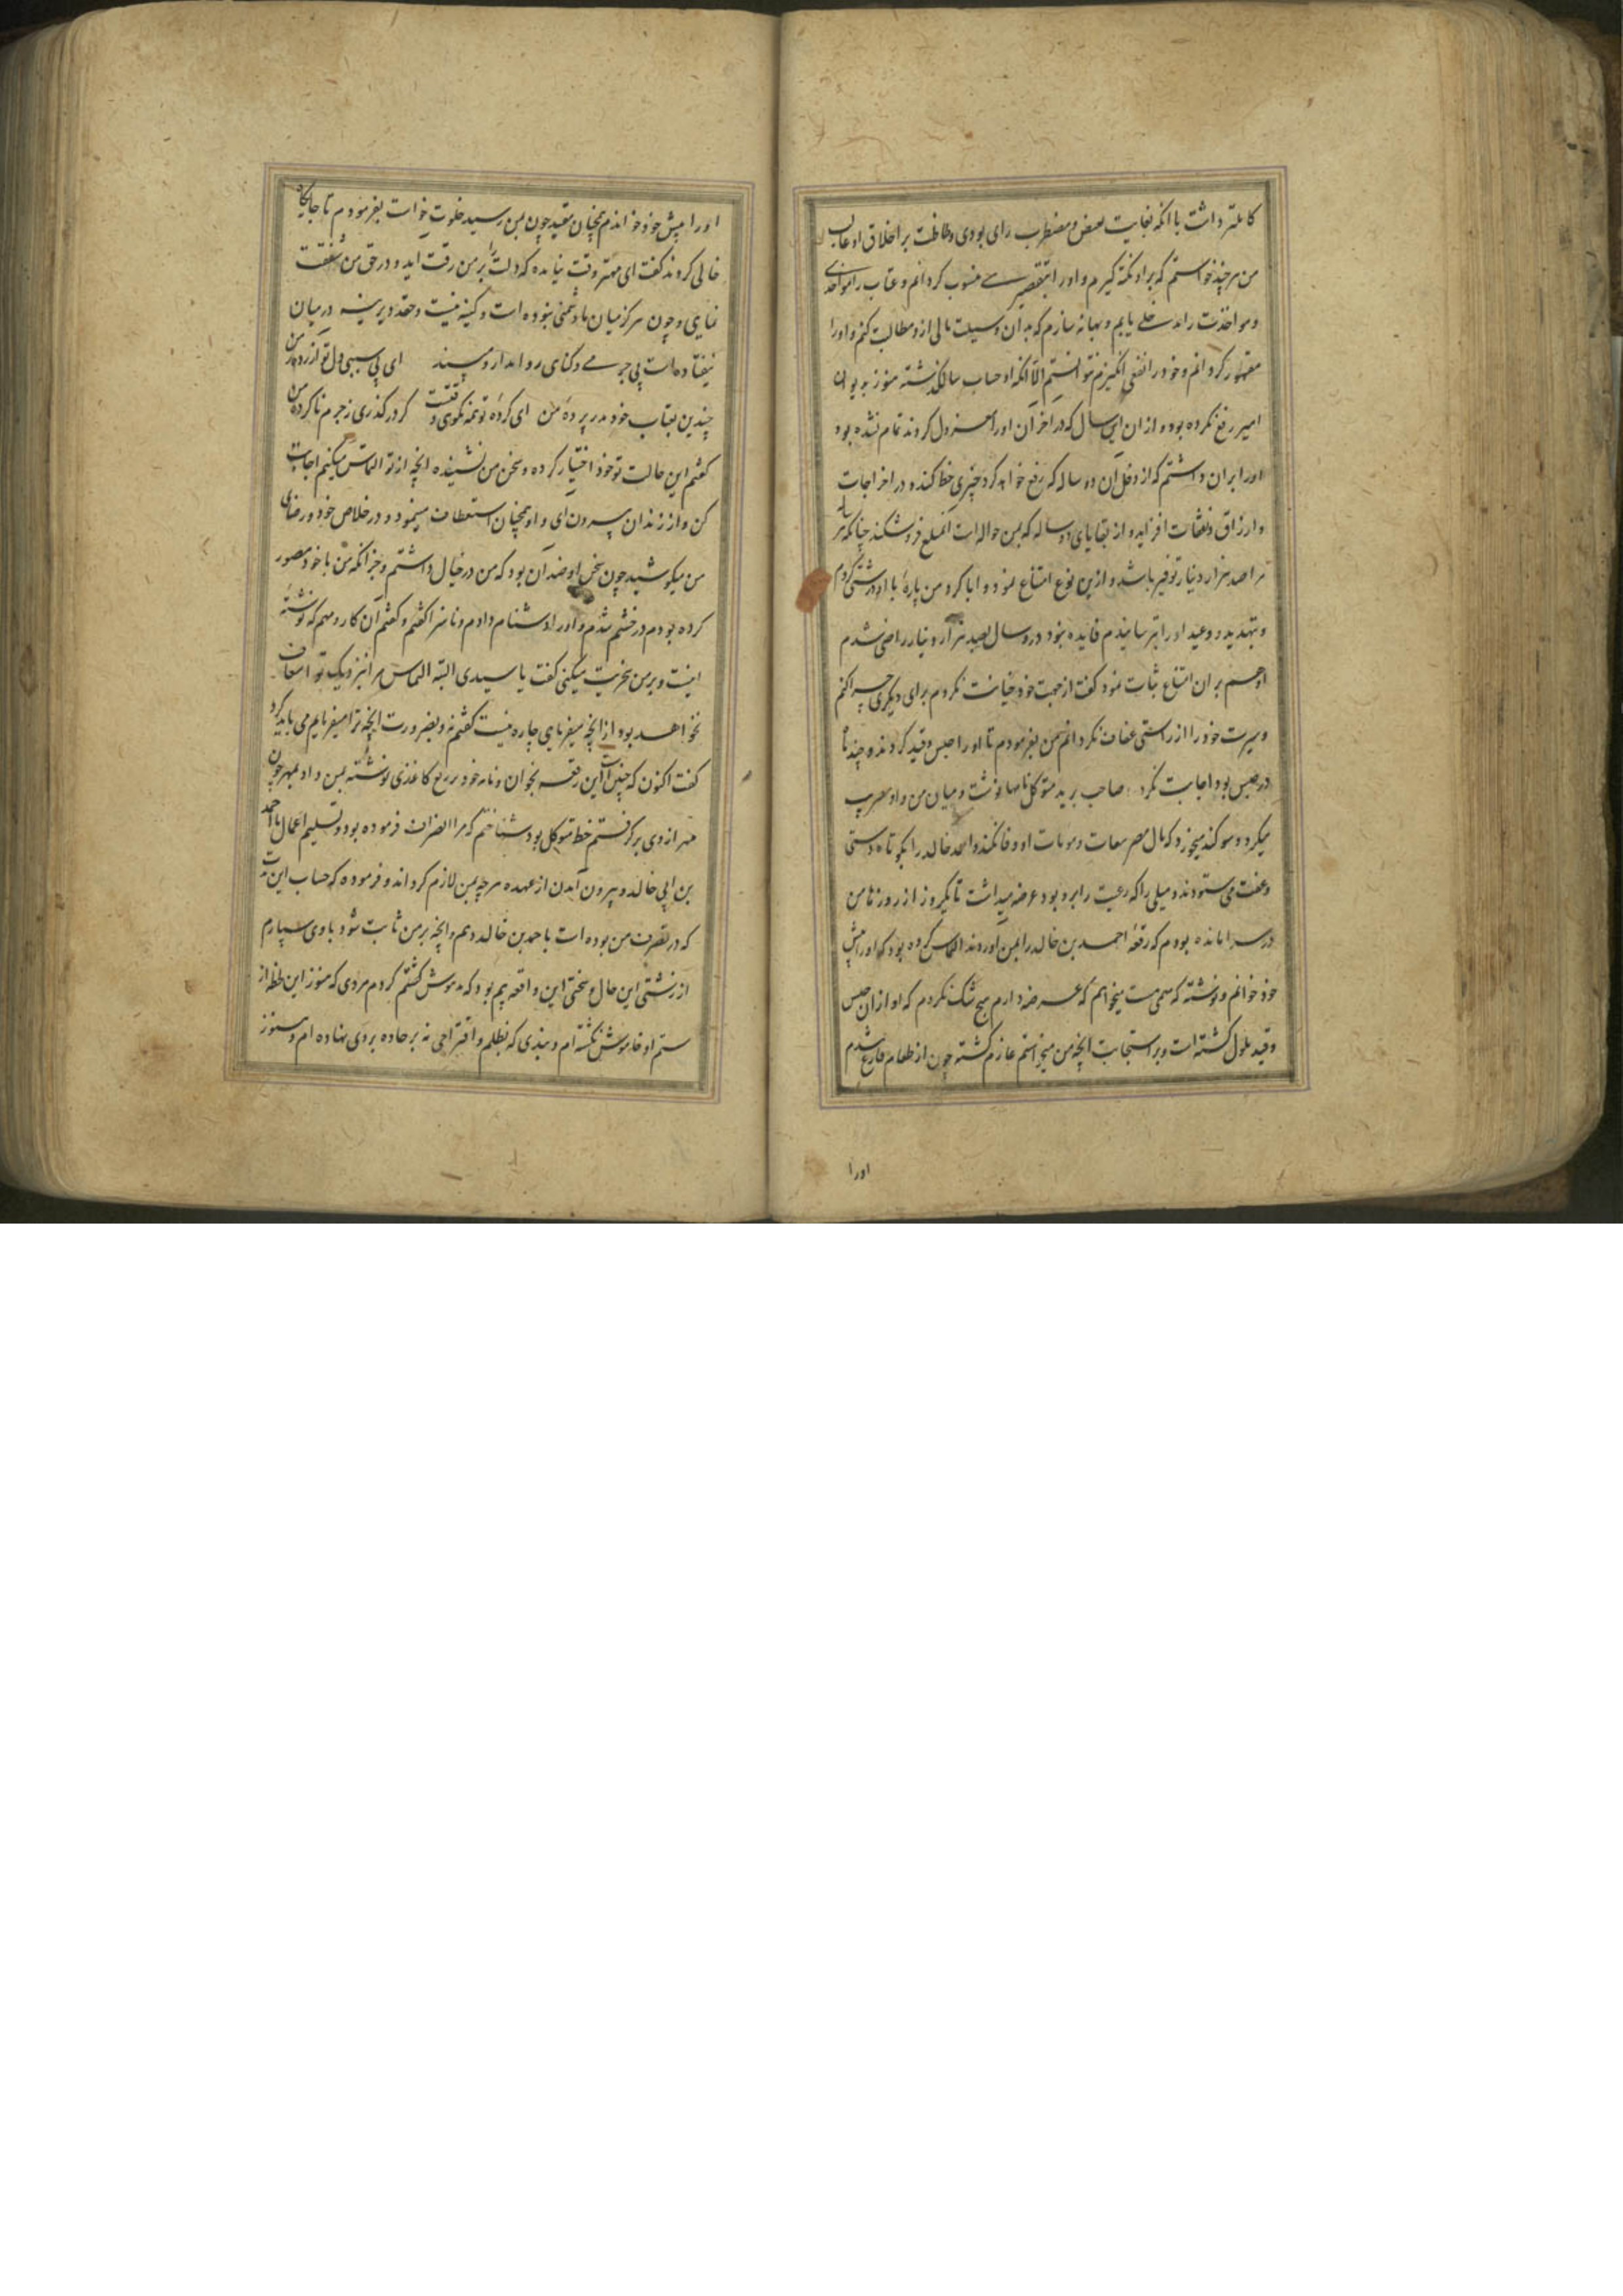 کاملتر داشت با آنکه بغایت مبغض و مضطرب رای بودی و غلظت بر اخلاق او غالب
من هر چند خواستم که بر او نکته گیرم و او را بتقصیری منسوب کردانم و عتاب را موضعی
و مواخذت را مدخلی یابم و بهانه سازم که بدان وسیلت مالی ازو مطالبت کنم و او را
مقهور کردانم و خود را نفعی انگیزم نتوانستم الا آنکه او حساب سال گذشته هنوز بدیوان
امیر رفع نکرده بود و ازان این سال که در آخر آن او را معزول کردند تمام نشده بود
او را بران داشتم که از دخل آن دو ساله که رفع خواهد کرد چیزی حط کند و در اخراجات
و ارزاق و نفقات افزاید و از بقایای دو ساله که بمن حواله است آنمبلغ فرو شکند چنانکه هر سال
مرا صد هزار دینار توفیر باشد و ازین نوع امتناع نمود و ابا کرد من پارهٔ با او درشتی کردم
و بتهدید و وعید او را بترسانیدم فایده نبود در دو سال بصد هزار دینار راضی شدم
او هم بران امتناع ثبات نمود گفت از جهت خود خیانت نکردم برای دیگری چرا کنم
و سیرت خود را از راستی عفاف نکردانم من بفرمودم تا او را حبس و قید کردند و چند ماه
در حبس بود اجابت نکرد صاحب برید متوکل نامها نوشت و میان من و او تضریب
میکرد و سوگند میخورد که مال مصر بنفقات و مونات او وفا نکند و احمد خالد را بکوتاه دستی
و عفت می ستودند و میلی را که رعیت را برو بود عرضه میداشت تا یکروز از روزها من
در سرا مانده بودم که رقعهٔ احمد بن خالد را بمن آوردند التماس کرده بود که او را پیش
خود خوانم و نوشته که مهمی هست میخواهم که عرضه دارم هیچ شک نکردم که او ازان حبس
و قید ملول گشته است و بر استجابت آنچه من میخواستم عازم گشته چون از طعام فارغ شدم
اورا
او را پیش خود خواندم همچنان مقید چون بمن رسید خلوت خواست بفرمودم تا جایگاه
خالی کردند گفت ای مهتر وقت نیامده که دلت را بر من رقت آید و در حق من شفقت
نمایی و چون هرگز میان ما دشمنی نبوده است و کینه نیست و حقد دیرینه در میان
نیفتاده است بی جرمی و گناهی روا مدار و مپسند ای بی سببی دل تو آزرده ز من
چندین بعتاب خود مدر پردهٔ من ای کردهٔ تو همه نکوی وقتست گر درگذری ز جرم ناکردهٔ من
گفتم این حالت تو خود اختیار کرده و سخن من نشنیده آنچه از تو التماس میکنم اجابت
کن و از زندان بیرون آی و او همچنان استعطاف مینمود و در خلاص خود و رضای
من میکوشید چون سخن او ضد آن بود که من در خیال داشتم و جز آنکه من با خود مصور
کرده بودم در خشم شدم و او را دشنام دادم و ناسزا گفتم و گفتم آن کار و مهم که نوشته
اینست و بر من سخریت میکنی گفت یا سیدی البته التماس مرا نزدیک تو اسعاف
نخواهد بود از آنچه میفرمایی چاره نیست گفتم نه و بضرورت آنچه ترا میفرمایم می باید کرد
گفت اکنون که چنین است این رقعه بخوان و نامهٔ خود در ربع کاغذی نوشته بمن داد بمهر چون
مهر از وی برگرفتم خط متوکل بود شناختم که مرا انصراف فرموده بود و تسلیم اعمال باحمد
بن ابی خالد و بیرون آمدن از عهده هرچه بمن لازم کرداند و فرموده که حساب این مدت
که در تصرف من بوده است با احمد بن خالد دهم و آنچه بر من ثابت شود با وی سپارم
از زشتی این حال و سختی این واقعه بیم بود که مدهوش گشتم گردم مردی که هنوز این لحظه از
ستم او خاموش نگشته ام و بندی که بظلم و اقتراحی نه بر جاده بر وی نهاده ام و هنوز